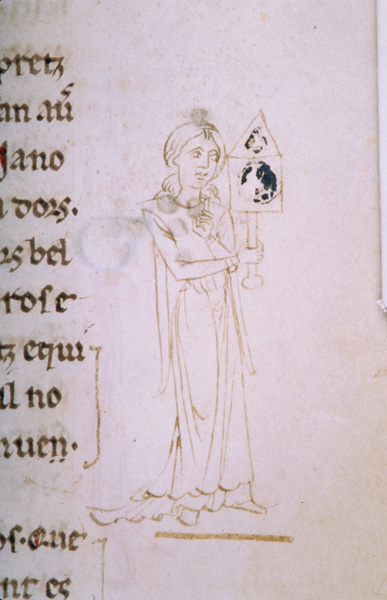 pretz
an aū
iano
a dors.
rs bel
rose
tz equi
il no
nuen.
os. Que
nt es